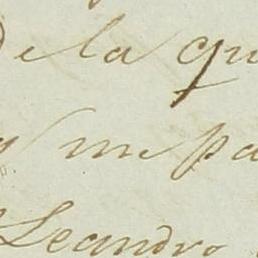 de la qu
y me pa
Leandro